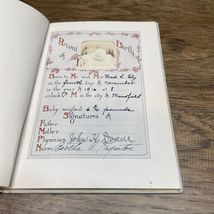 Record of Birth
Born to Mr. and Mrs. Fred L.
on the fourth day of November
in the year of 1916 at 8
o'clock P M in the city of Mansfield
Baby weighed 6 ½ pounds
Signatures of
Father
Mother
Physician John H.
Nurse